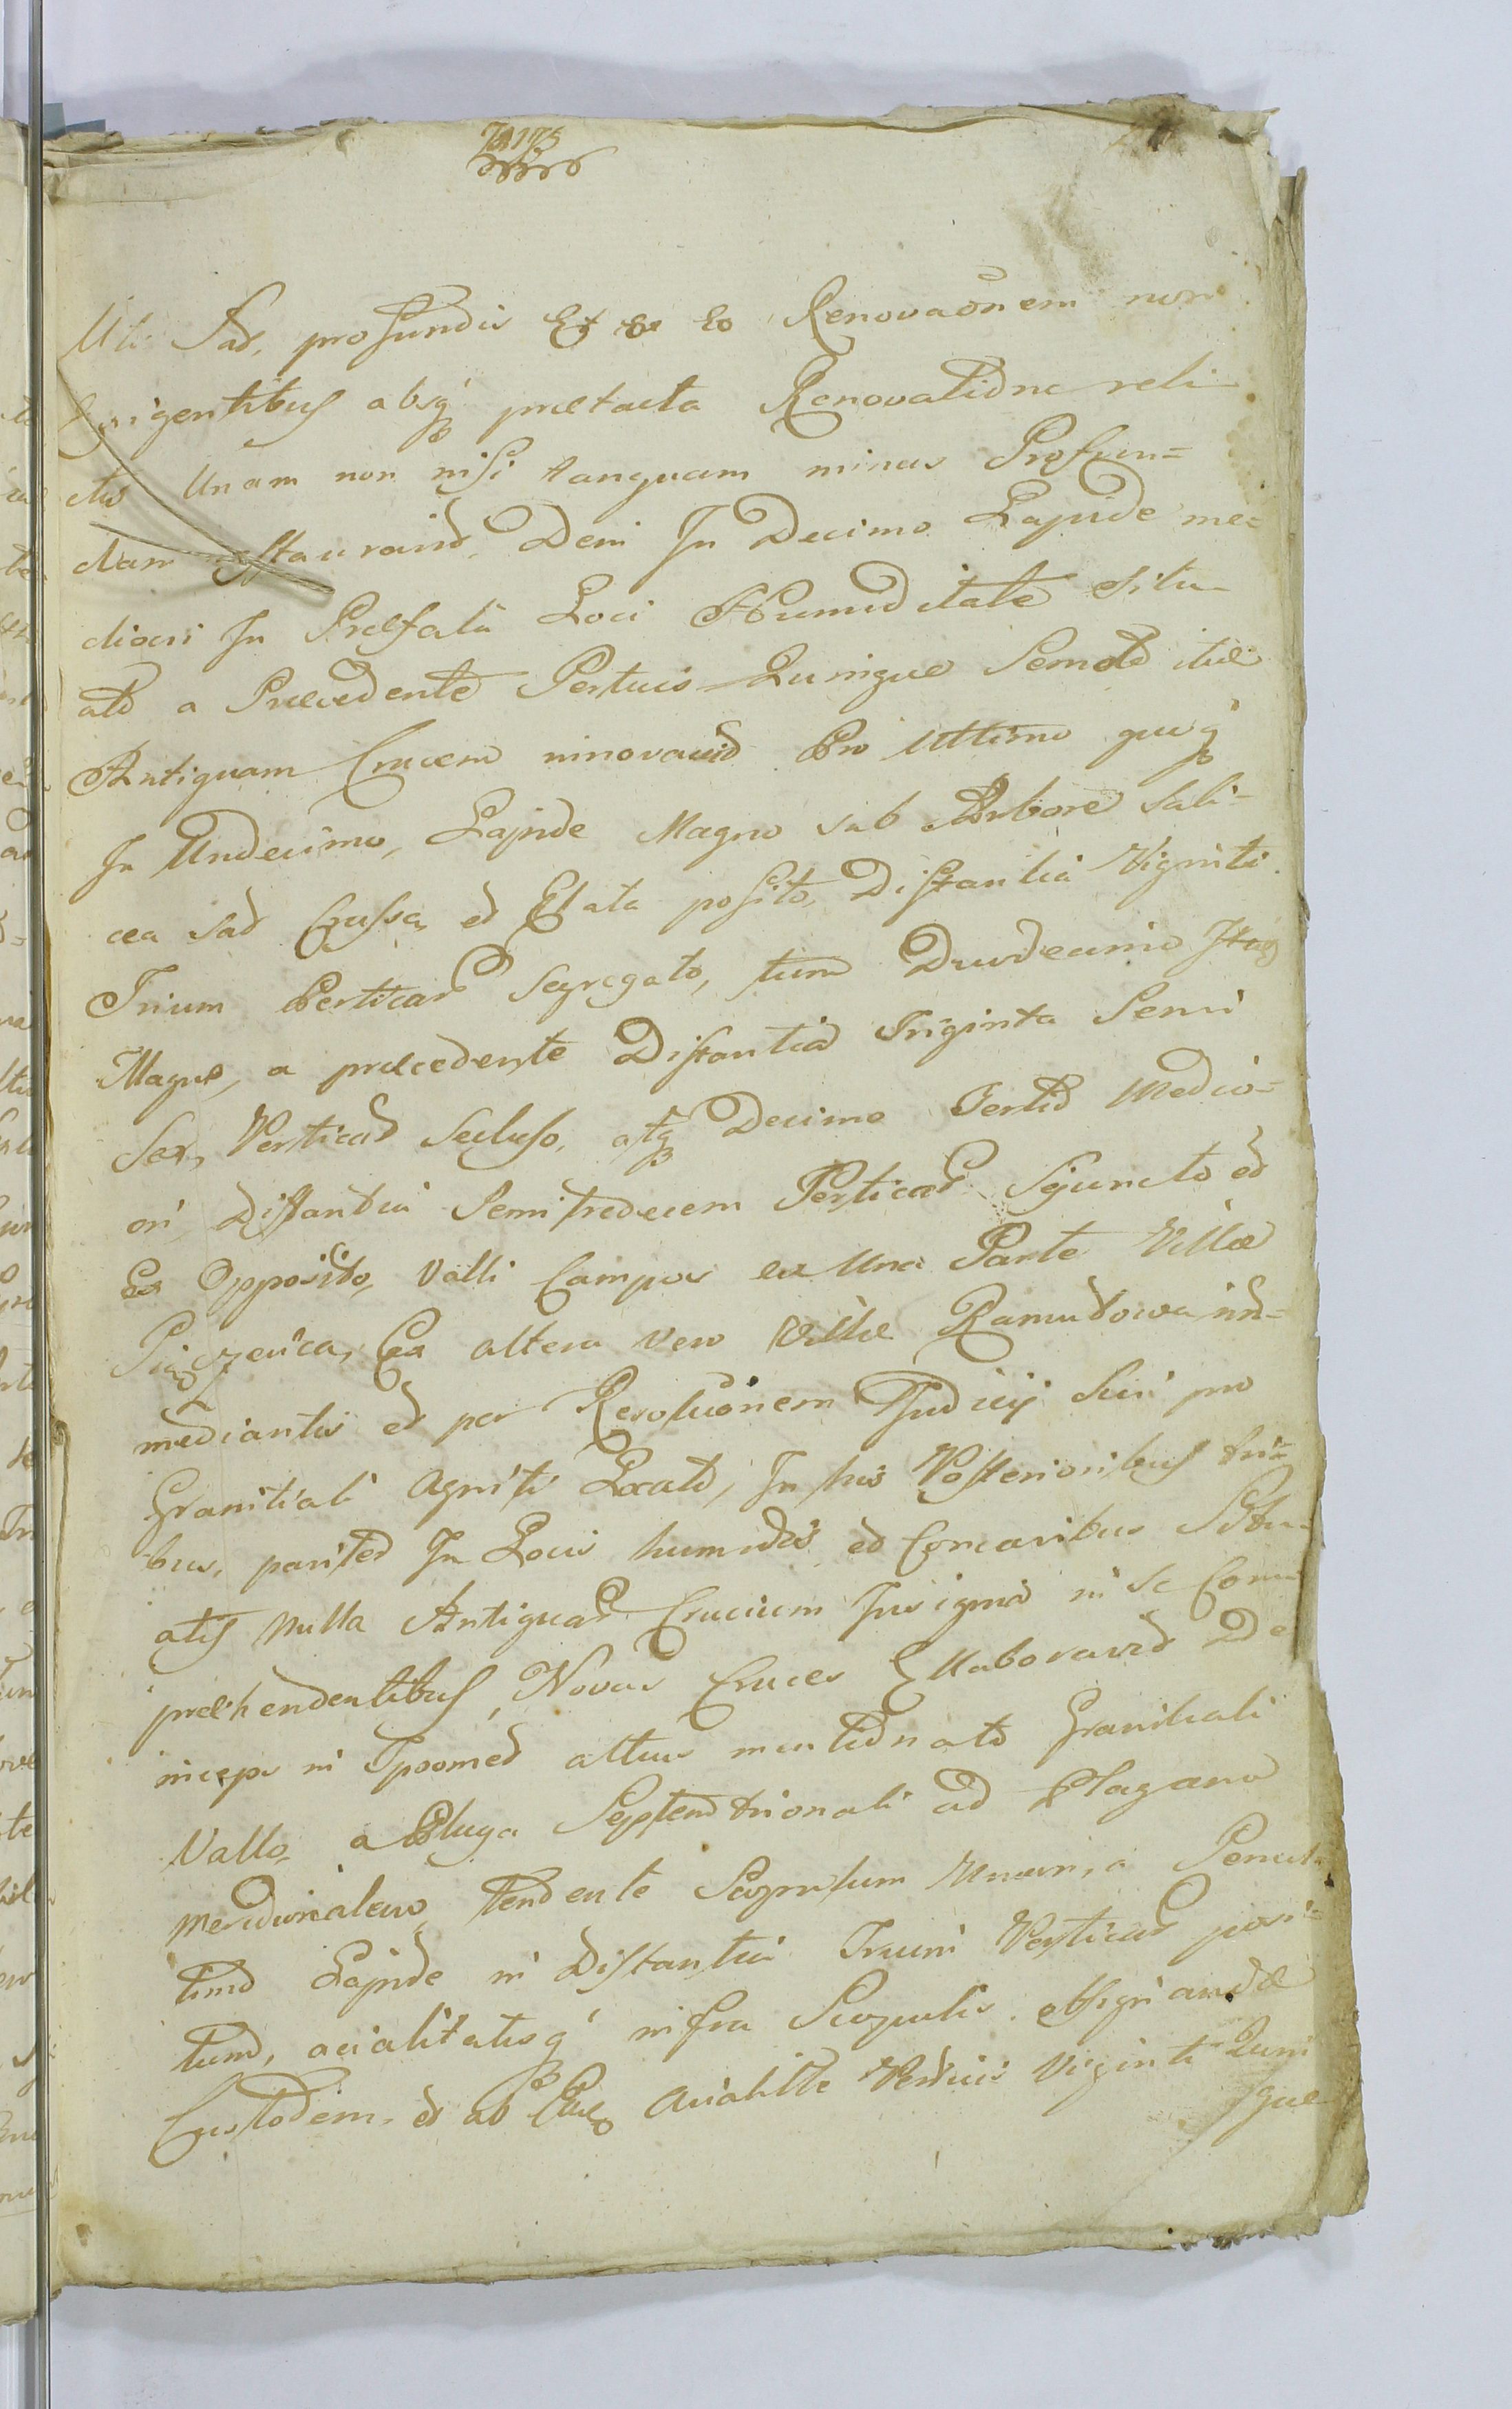 Uti Sat, profundis Et ex eo Renovaõnem non
Exigentibus absq́ prætacta Renovatione reli-
ctis Unam non nisi tanquam minus Profun=
dam restauravit, Dein In Decimo Lapide me=
diocri In Præfata Loci Humiditate situ-
ato a Præcedente Perticis Quinque Semoto itæ
Antiquam Crucem innovavit Pro Ultimo quoq́
In Undecimo, Lapide Magno sub Arbore Sali=
cea Sat Crassa et Elata posito, Distantia Viginti
Trium Perticar Segregato, tum Duodecimo Itaq
Magno, a præcedente Distantia Triginta Semi
Sex, Perticar Secluso, atq Decimo Tertio Medio=
cri, Distantia Semitredecem Perticar Sejuncto et
Ex Opposito, Valli Campos ex Una Parte Villæ
Ex altera vero Villæ int=
mediantis et per Resoluõnem Judicij Sui pro
Granitiali Agniti Locato, In his Posterioribus tri=
bus, pariter In Locis humidis et Concavibus Situ-
atis Nulla Antiquar Crucium Insignia in se Com
præhendentibus, Novas Cruces Ellaboravit De
inceps in altius mentionato Granitiali
Vallo, a Plaga Septemtrionali ad Plagam
Meridionalem, tendente Scopulum Unum, a Penul-
timo Lapide in Distantia Trium Perticar posi=
tum, acialitatisq́ infra Scopulis obsignandæ
Custodem, et ab Eo acialitte Perticis Viginti Quin
que